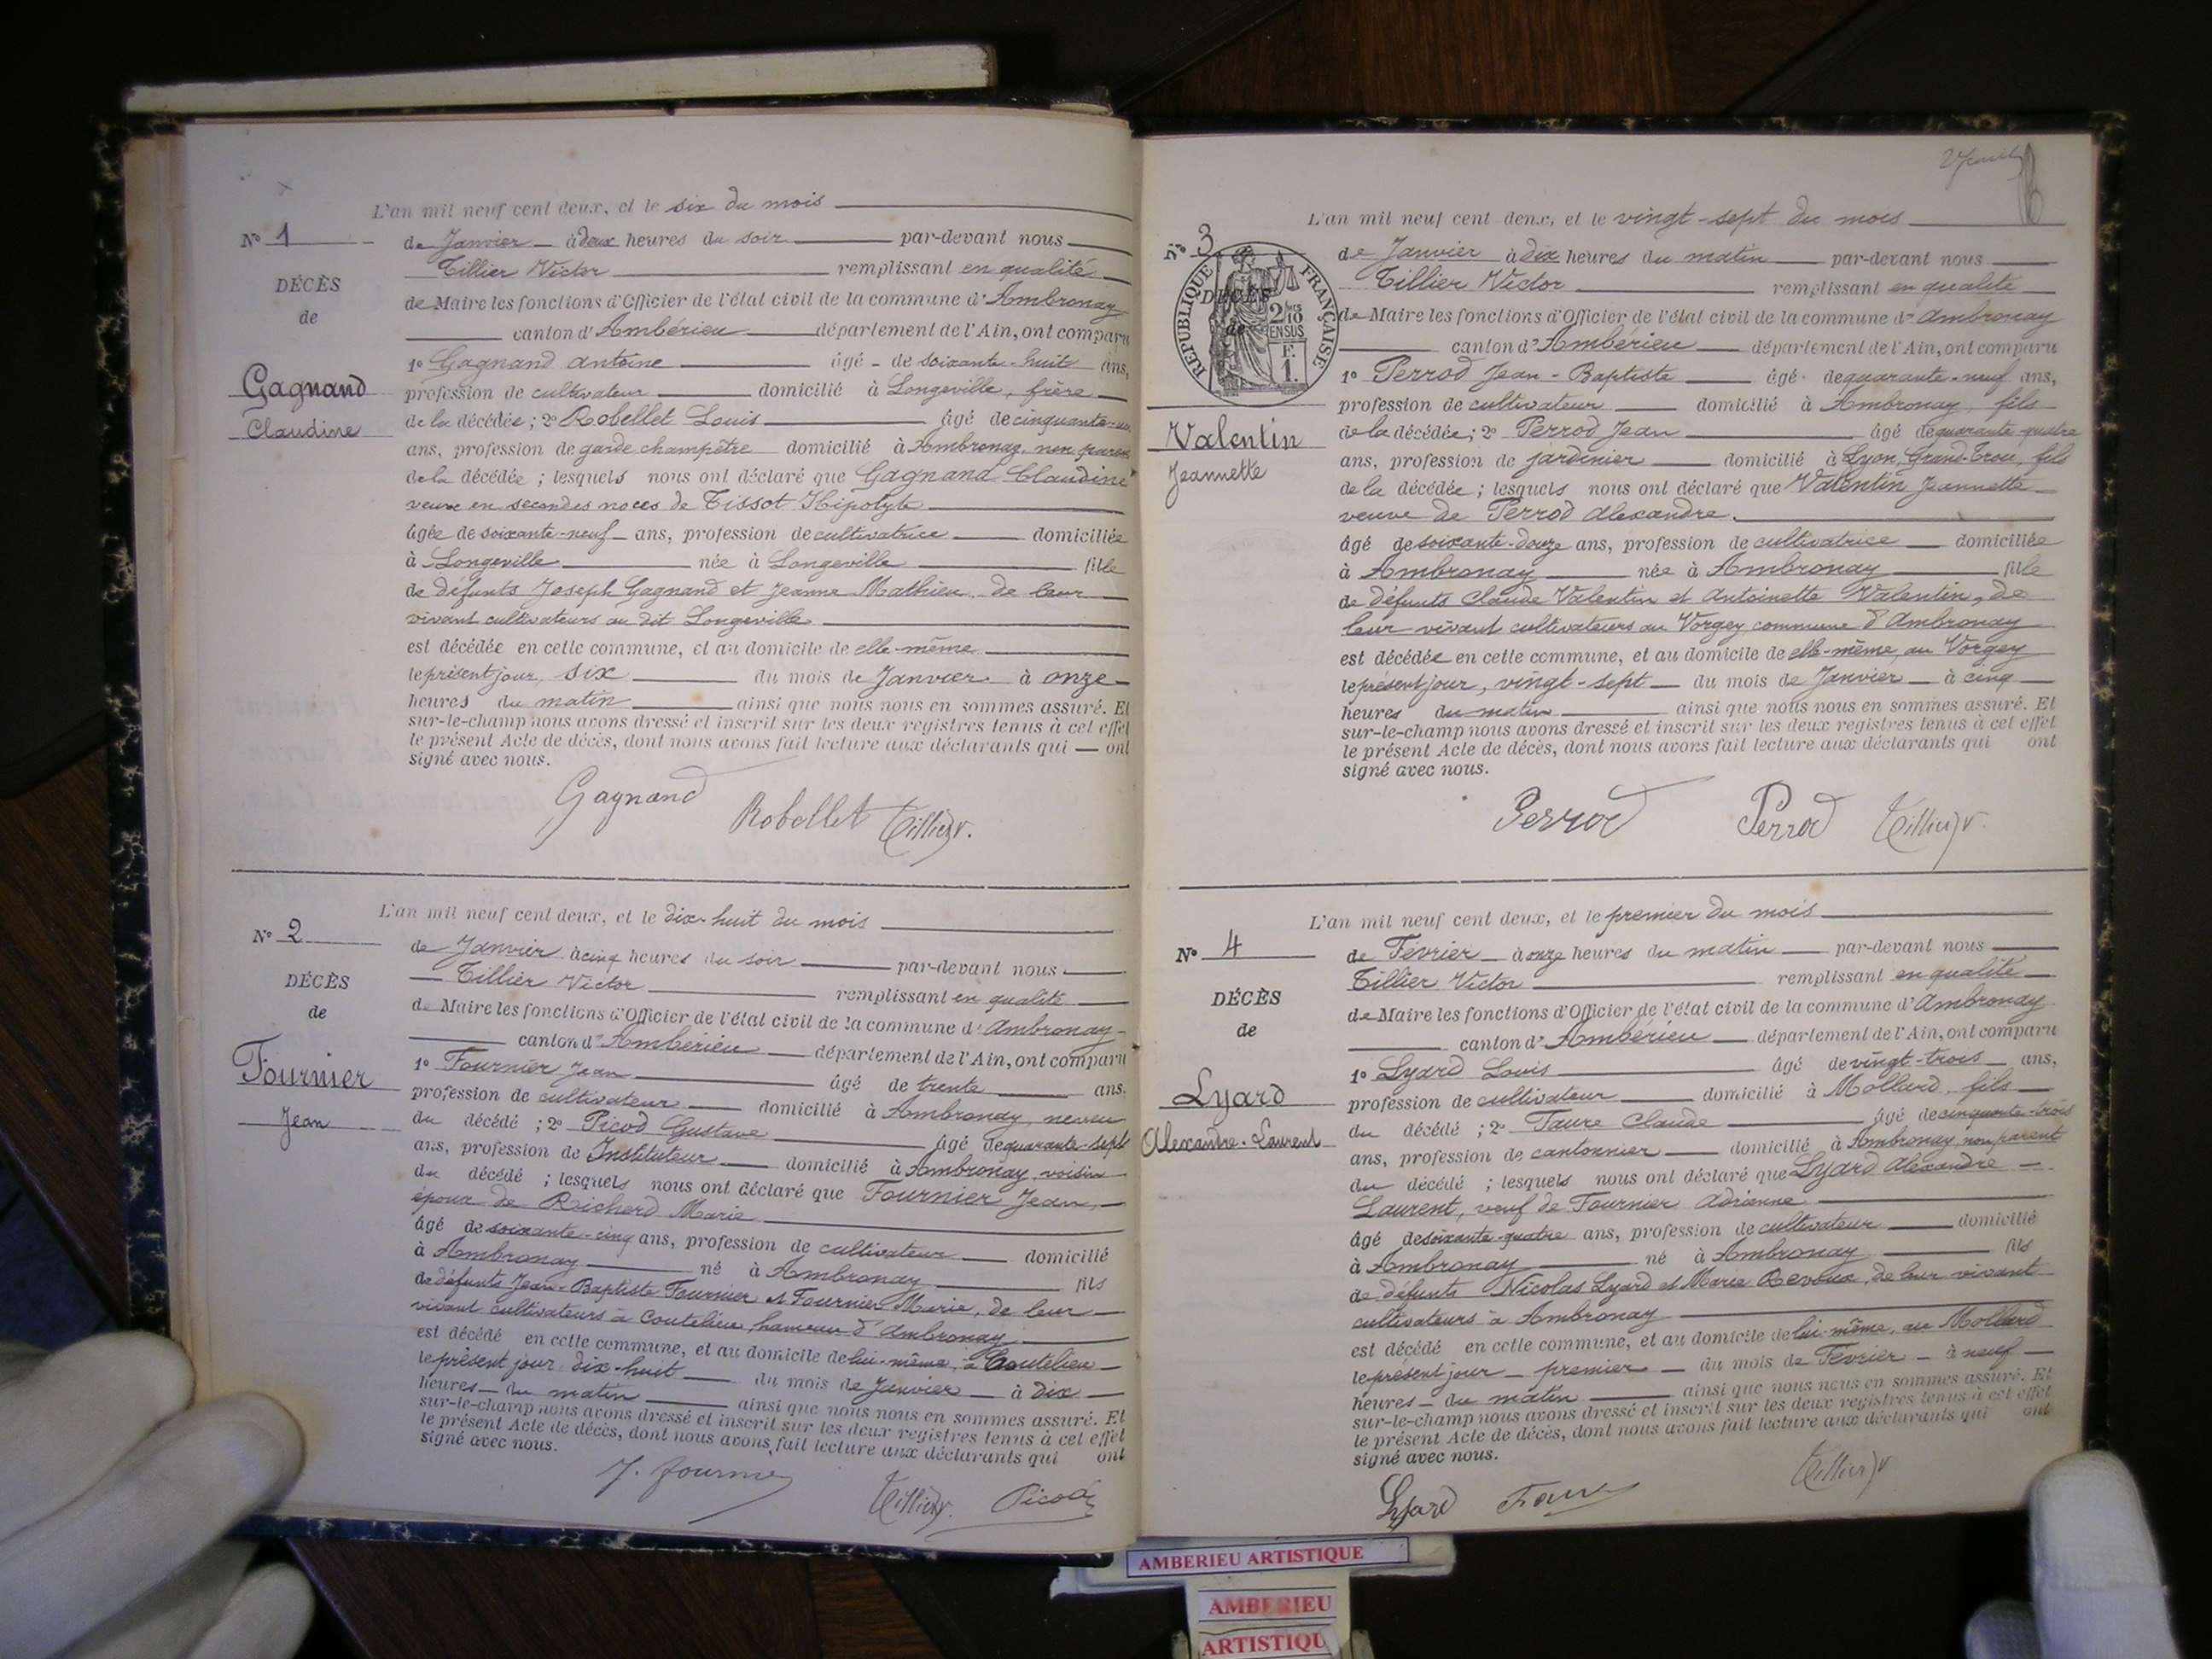 L'an mil neuf cent deux, et le six du mois
N° 1
de Janvier à deux heures du soir par-devant nous
Tillier Victor remplissant en qualité
DÉCÈS
de Maire les fonctions d'Officier de l'état civil de la commune d'Ambronay
de
canton d'Ambérieu département de l'Ain, ont comparu
1° Gagnand Antoine âgé de soixante-huit ans,
Gagnand
profession de cultivateur domicilié à Longeville, frère
Claudine
de la décédée; 2° Robellet Louis âgé de cinquante-un
ans, profession de garde champêtre domicilié à Ambronay, non parent
de la décédée; lesquels nous ont déclaré que Gagnand Claudine
veuve en secondes noces de Tissot Hipolyte
âgée de soixante-neuf ans, profession de cultivatrice domiciliée
à Longeville née à Longeville fille
de défunts Joseph Gagnand et Jeanne Mathieu, de leur
vivant cultivateurs au dit Longeville
est décédée en cette commune, et au domicile de elle-même
le présent jour, six du mois de Janvier à onze
heures du matin ainsi que nous nous en sommes assuré. Et
sur-le-champ nous avons dressé et inscrit sur les deux registres tenus à cet effet
le présent Acte de décès, dont nous avons fait lecture aux déclarants qui ont
signé avec nous.
Gagnand Robellet Tillier V.
L'an mil neuf cent deux, et le dix-huit du mois
N° 2
de Janvier à cinq heures du soir par-devant nous
Tillier Victor remplissant en qualité
DÉCÈS
de Maire les fonctions d'Officier de l'état civil de la commune d'Ambronay
de
canton d'Ambérieu département de l'Ain, ont comparu
1° Fournier Jean âgé de trente ans,
Fournier
profession de cultivateur domicilié à Ambronay, neveu
Jean
du décédé; 2° Picod Gustave âgé de quarante-sept
ans, profession de Instituteur domicilié à Ambronay, voisin
du décédé; lesquels nous ont déclaré que Fournier Jean,
époux de Richerd Marie
âgé de soixante-cinq ans, profession de cultivateur domicilié
à Ambronay né à Ambronay fils
de défunts Jean-Baptiste Fournier et Fournier Marie, de leur
vivant cultivateurs à Coutelieu, hameau d'Ambronay
est décédé en cette commune, et au domicile de lui-même, à Coutelieu
le présent jour, dix-huit du mois de Janvier à dix
heures du matin ainsi que nous nous en sommes assuré. Et
sur-le-champ nous avons dressé et inscrit sur les deux registres tenus à cet effet
le présent Acte de décès, dont nous avons fait lecture aux déclarants qui ont
signé avec nous.
J. Fournier Tillier V. Picod
L'an mil neuf cent deux, et le vingt-sept du mois
N° 3
de Janvier à dix heures du matin par-devant nous
RÉPUBLIQUE FRANÇAISE
2/10 EN SUS
F. 1.
Tillier Victor remplissant en qualité
DÉCÈS
de Maire les fonctions d'Officier de l'état civil de la commune d'Ambronay
de
canton d'Ambérieu département de l'Ain, ont comparu
1° Perrod Jean-Baptiste âgé de quarante-neuf ans,
profession de cultivateur domicilié à Ambronay, fils
Valentin
de la décédée; 2° Perrod Jean âgé de quarante-quatre
Jeannette
ans, profession de jardinier domicilié à Lyon, Grand-Trou, fils
de la décédée; lesquels nous ont déclaré que Valentin Jeannette
veuve de Perrod Alexandre
âgé de soixante-douze ans, profession de cultivatrice domiciliée
à Ambronay née à Ambronay fille
de défunts Claude Valentin et Antoinette Valentin, de
leur vivant cultivateurs au Vorgey commune d'Ambronay
est décédée en cette commune, et au domicile de elle-même, au Vorgey
le présent jour, vingt-sept du mois de Janvier à cinq
heures du matin ainsi que nous nous en sommes assuré. Et
sur-le-champ nous avons dressé et inscrit sur les deux registres tenus à cet effet
le présent Acte de décès, dont nous avons fait lecture aux déclarants qui ont
signé avec nous.
Perrod Perrod Tillier V.
L'an mil neuf cent deux, et le premier du mois
N° 4
de Février à onze heures du matin par-devant nous
Tillier Victor remplissant en qualité
DÉCÈS
de Maire les fonctions d'Officier de l'état civil de la commune d'Ambronay
de
canton d'Ambérieu département de l'Ain, ont comparu
1° Lyard Louis âgé de vingt-trois ans,
Lyard
profession de cultivateur domicilié à Mollard, fils
Alexandre-Laurent
du décédé; 2° Faure Claude âgé de cinquante-trois
ans, profession de cantonnier domicilié à Ambronay, non parent
du décédé; lesquels nous ont déclaré que Lyard Alexandre
Laurent, veuf de Fournier Adrienne
âgé de soixante-quatre ans, profession de cultivateur domicilié
à Ambronay né à Ambronay fils
de défunts Nicolas Lyard et Marie Revoux, de leur vivant
cultivateurs à Ambronay
est décédé en cette commune, et au domicile de lui-même, au Mollard
le présent jour premier du mois de Février à neuf
heures du matin ainsi que nous nous en sommes assuré. Et
sur-le-champ nous avons dressé et inscrit sur les deux registres tenus à cet effet
le présent Acte de décès, dont nous avons fait lecture aux déclarants qui ont
signé avec nous.
Lyard Faure Tillier V
AMBERIEU ARTISTIQUE
AMBERIEU
ARTISTIQU